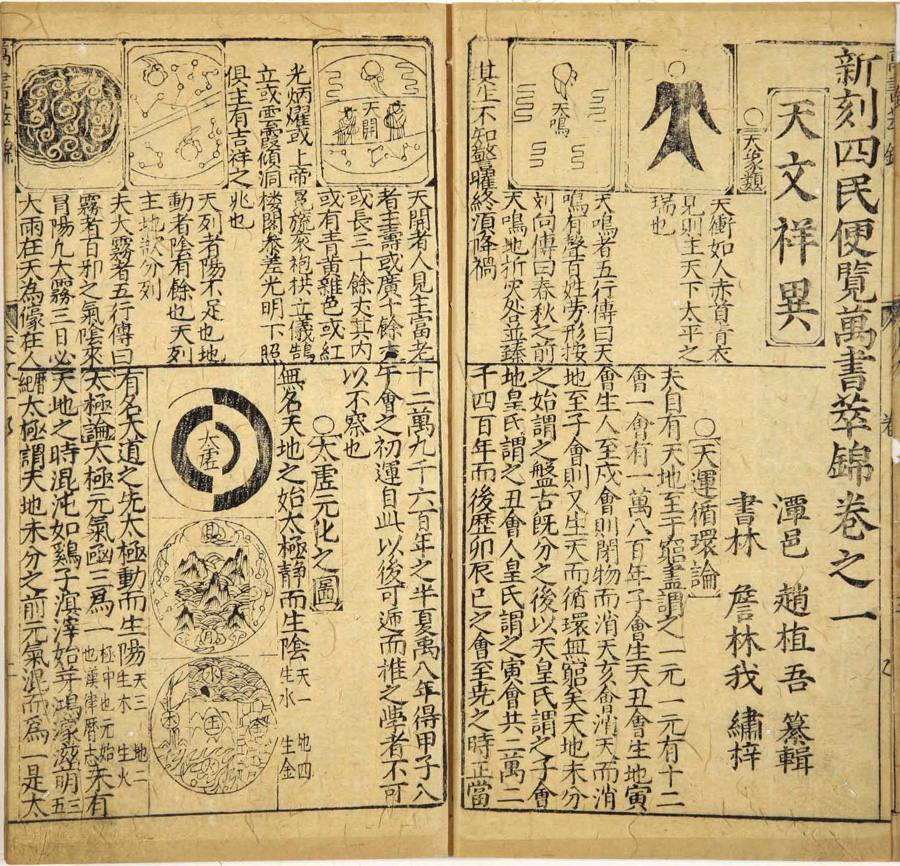 新刻四民便覽萬書萃錦卷之一
潭邑 趙植吾 纂輯
書林 詹林我 繡梓
天文祥異
○天象類
天衝如人赤首青衣
見則主天下太平之
瑞也
天鳴
天鳴者五行傳曰天
鳴有聲百姓勞形按
劉向傳曰春秋之前
天鳴地折次处並臻
其生不知警曜終須降禍
○天運循環論
夫自有天地至于窮盡謂之一元一元有十二
會一會有一萬八百年子會生天丑會生地寅
會生人至戌會則閉物而消天亥會消天而消
地至子會則又生天而循環無窮矣天地未分
之始謂之盤古既分之後以天皇氏謂之子會
地皇氏謂之丑會人皇氏謂之寅會共二萬二
千四百年而後歷卯辰巳之會至堯之時正當
天開
天開者人見主富老
者主壽或廣十餘丈
或長三十餘丈其內
或有青黃雜色或紅
光炳耀或上帝冕旒袞袍拱立儀鵠
立或雲霞傾洞樓閣參差光明下照
俱主有吉祥之兆也
天列者陽不足也地
動者陰有餘也天列
主地欲分列
夫大霧者五行傳曰
霧者百邪之氣陰來
冒陽凡大霧三日必
大雨在天為濛在人
十二萬九千六百年之半夏禹八年得甲子八
午會之初運自此以後可遞而推之學者不可
以不察也
○太虛元化之圖
無名天地之始太極靜而生陰 天一生水 地四生金
太虛
有名大道之先太極動而生陽 天三生木 地二生火
太極論太極元氣函三為一 極中也元始也漢律曆志 未有
天地之時混沌如雞子溟涬始芽鴻濛滋萌 三五
曆紀 太極謂天地未分之前元氣混而為一是太